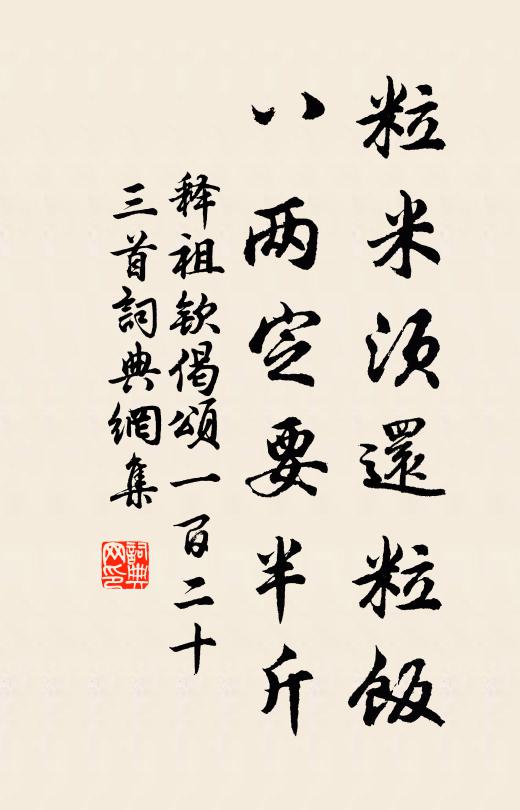 粒米须還粒飯
八两定要半斤
释祖钦偈頌一百二十
三首詞典網集
詞典
网印